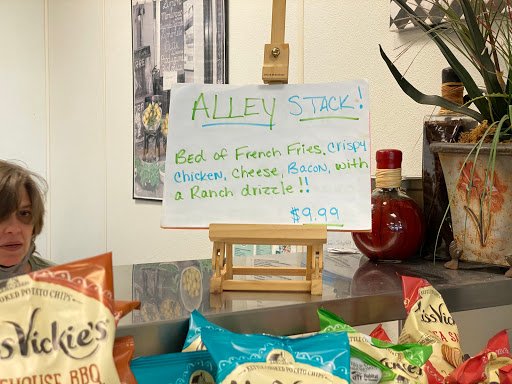 ALLEY STACK!
Bed of French Fries, crispy
chicken, cheese, Bacon, with
a Ranch drizzle!!
$9.99
POTATO CHIPS
ssVickie's
HOUSE BBQ